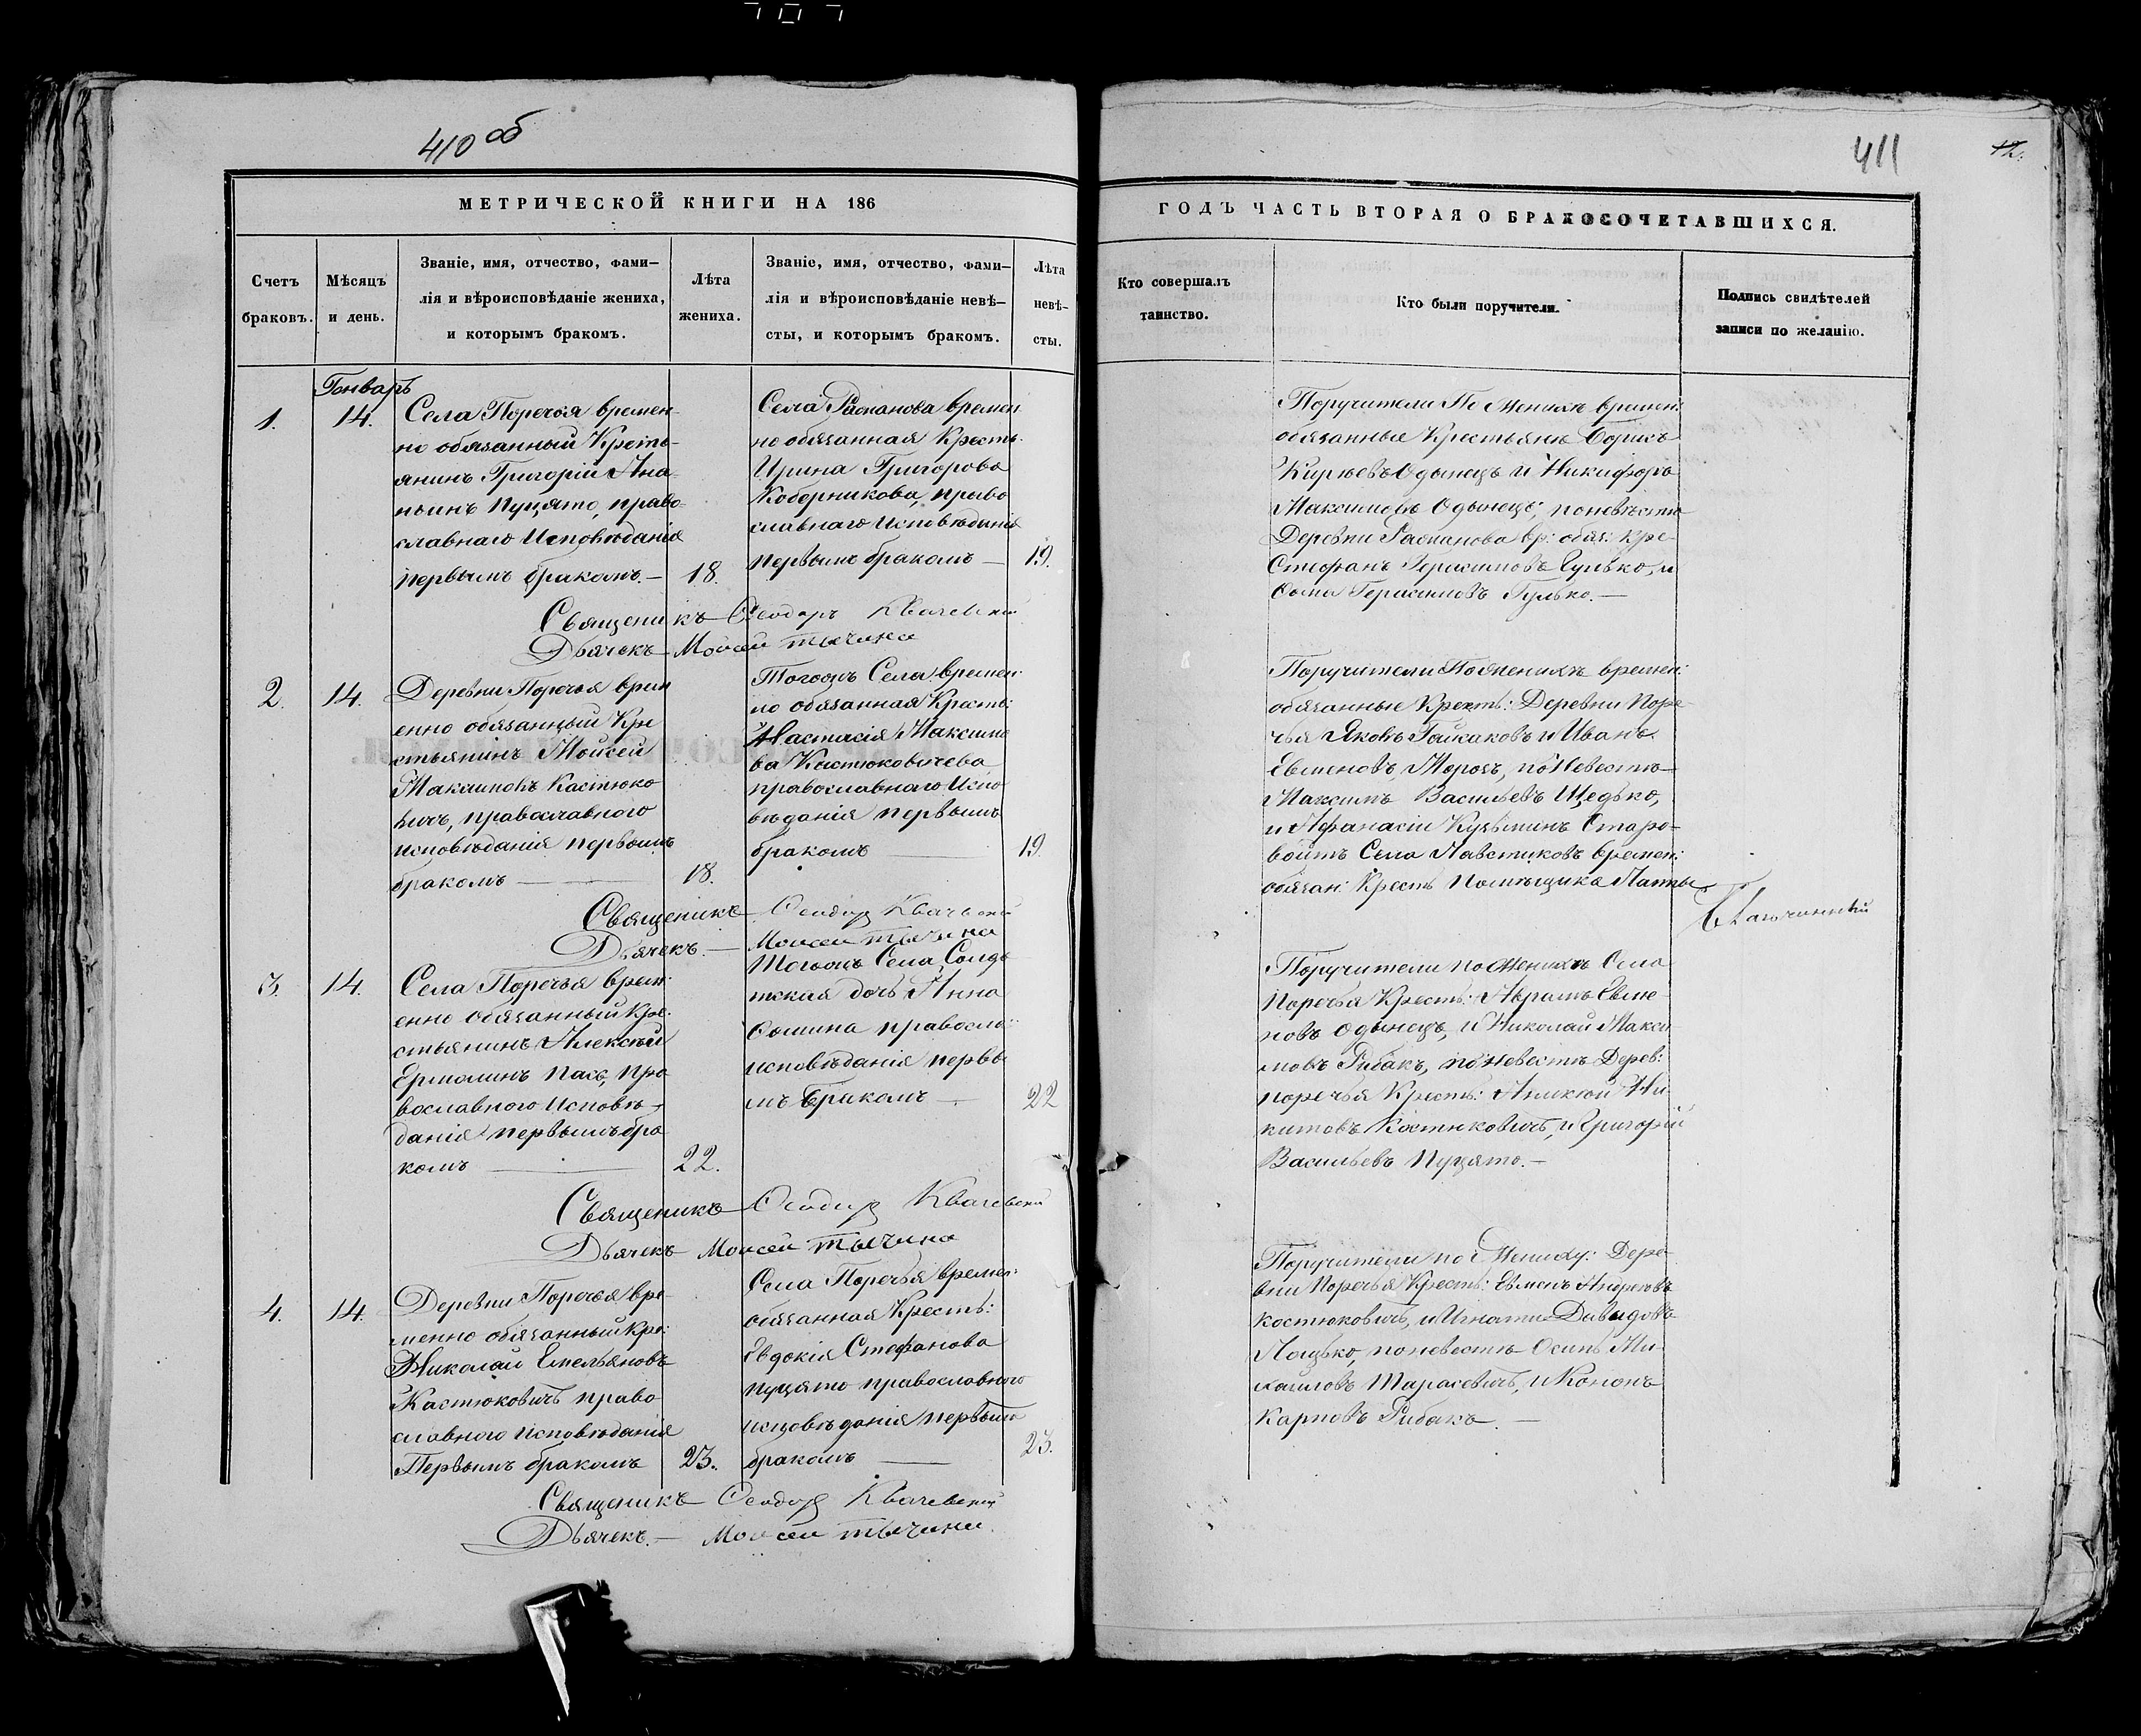 410 об
МЕТРИЧЕСКОЙ КНИГИ НА 186
Счетъ браковъ.
Мѣсяцъ и день.
Званіе, имя, отчество, фами-
лія и вѣроисповѣданіе жениха,
и которымъ бракомъ.
Лѣта жениха.
Званіе, имя, отчество, фами-
лія и вѣроисповѣданіе невѣ-
сты, и которымъ бракомъ.
Лѣта невѣ-
сты.
Генварь
1.
14.
Села Поречья времен-
но обязанный Кресть-
янинъ Григорій Ана-
ньинъ Пуцято, право-
славнаго Исповѣданія
первымъ бракомъ. —
18.
Села времен
но обязанная Кресть:
Ирина Григорова
Коберникова, право
славнаго исповѣданія
первымъ бракомъ —
19.
Священикъ Ѳеодоръ Квачевскій
Дьячекъ Моисей Тычина
2.
14.
Деревни Поречья врем
енно обязанный Кре
стьянинъ Мойсей
Максимовъ Кастюко
вичъ, православного
исповѣданія первымъ
бракомъ —
18.
Тогожъ Села времен:
но обязанная Кресть:
Настасія Максимо
ва Кастюковичева
православнаго Испо
вѣданія первымъ
бракомъ
19.
Священикъ Ѳеодоръ Квачевскій
Дьячекъ. — Моисей Тычина
3.
14.
Села Поречья врем:
енно обязанный Кре:
стьянинъ Алексѣй
Ермолинъ, пра
вославного Исповѣ-
данія первымъ бра
комъ
22.
Тогожъ Села, Солда
тская дочь Анна
Ѳомина правосла:
исповѣданія первы
мъ Бракомъ —
22
Священикъ Ѳеодоръ Квачевскій
Дьячекъ Моисей Тычина
4.
14.
Деревни Поречья вре-
менно обязанный Кре:
Николай Емельяновъ
Кастюковичъ право
славного исповѣданія
Первымъ бракомъ
23.
Села Поречья времен:
обязанная Кресть:
Евдокія Стефанова
пуцято православного
исповѣданія первымъ
бракомъ
23.
Священикъ Ѳеодоръ Квачевскій
Дьячекъ. — Моисей Тычина
411
12.
ГОДЪ ЧАСТЬ ВТОРАЯ О БРАКОСОЧЕТАВШИХСЯ.
Кто совершалъ
таинство.
Кто были поручители.
Подпись свидѣтелей
записи по желанію.
Поручители По Женихѣ времен:
обязанные Крестьяне Борисъ
Одынецъ и Никифоръ
Максимовъ Одынецъ, по невѣстѣ
Деревни вр: обяз: кре-
Стефанъ Герасимовъ Гулько, и
Ѳома Герасимовъ Гулько. —
Поручители По Женихѣ времен:
обязанные Кресть: Деревни Поре
чья Яковъ и Иванъ
Евменовъ Морозъ, по Невестѣ
Максимъ Васильевъ Щедько,
и Афанасіи Кузьминъ Старо-
войтъ Села времен:
обязан: Кресть Помѣщика
Поручители по Женихѣ Села
Поречья Кресть: Абрамъ Евме-
новъ Одынецъ, и Николай Макси
мовъ Рибакъ, по невестѣ Дерев:
поречья Кресть: Ни-
китовъ Костюковичъ, и Григорій
Васильевъ Пуцято. —
Поручители по Жениху: Дере-
вни Поречья Кресть: Евменъ Андреевъ
Костюковичъ, и Игнати Давыдовъ
по невестѣ Осипъ Ми-
хаиловъ Тарасевичъ, и Кононъ
Карповъ Рибакъ. —